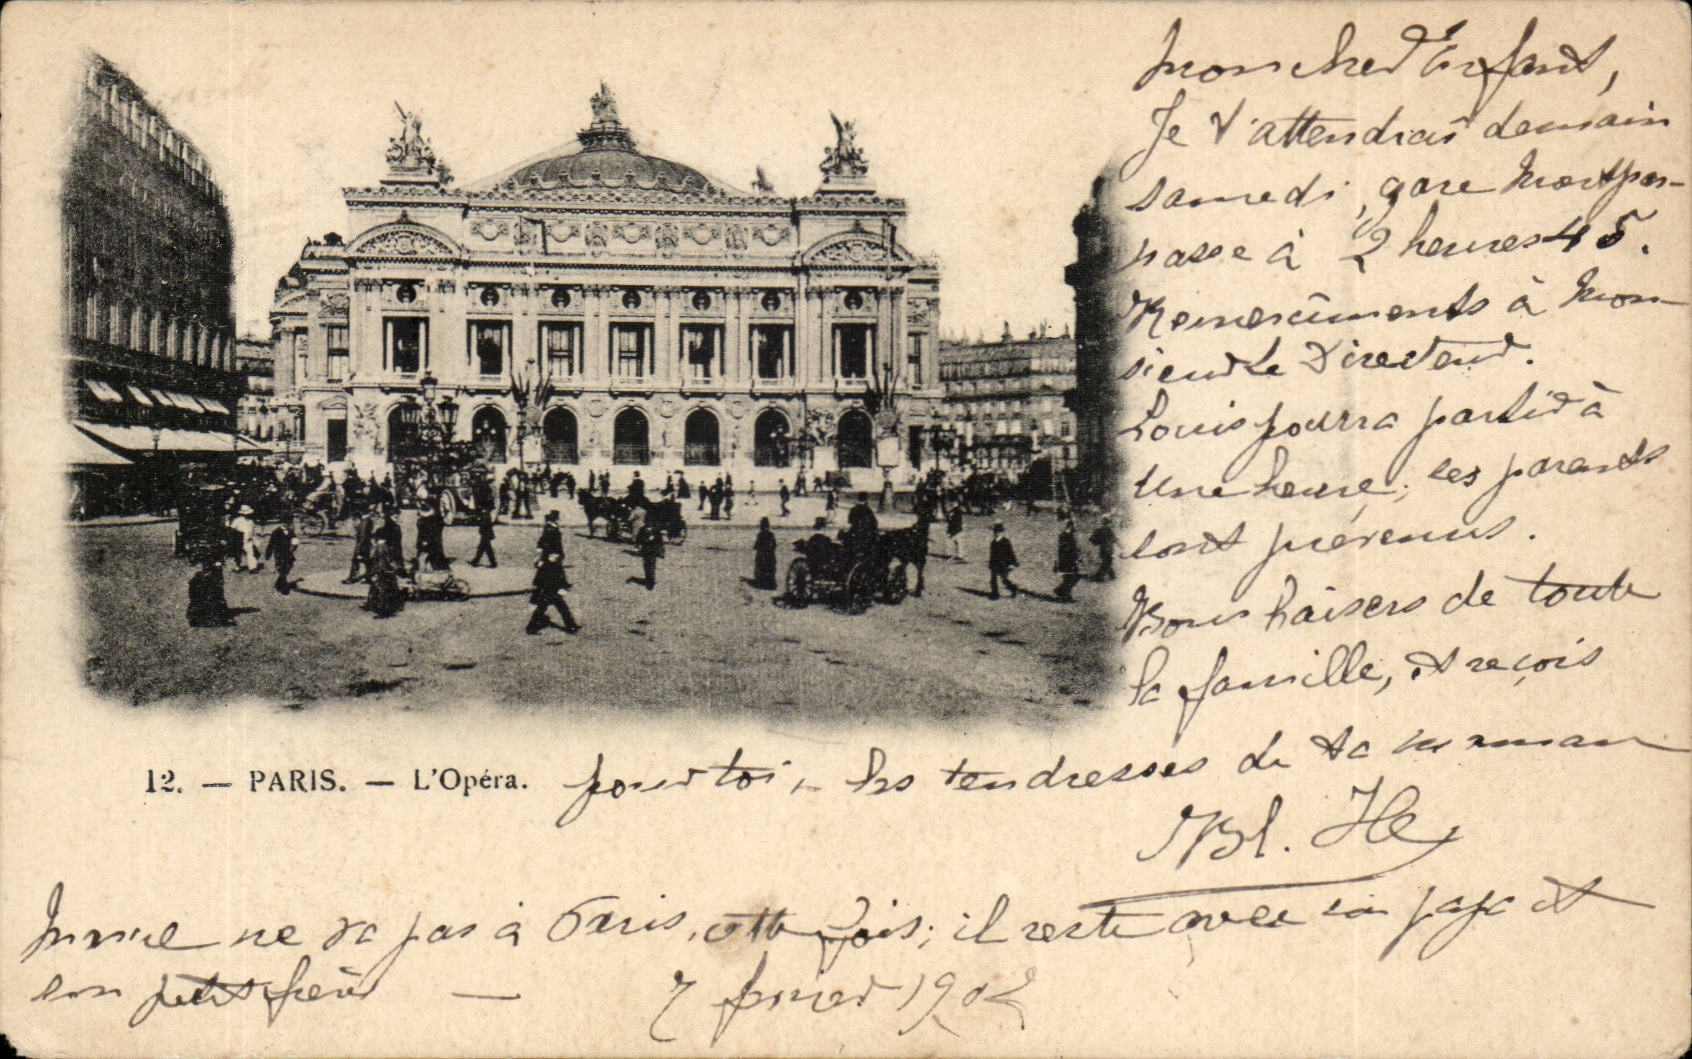 Mon cher Enfant,
Je t'attendrai demain
samedi, gare Montpar-
nasse à 2 heures 45.
Remerciments à Mon-
sieur le Directeur.
Louis pourra partir à
une heure; les parents
sont prévenus.
Bons baisers de toute
la famille, et reçois
12. — PARIS. — L'Opéra. pour toi, les tendresses de ta maman
Bl.
ne va pas à Paris, cette fois; il reste avec son papa et
son petit frère — 7 février 1902